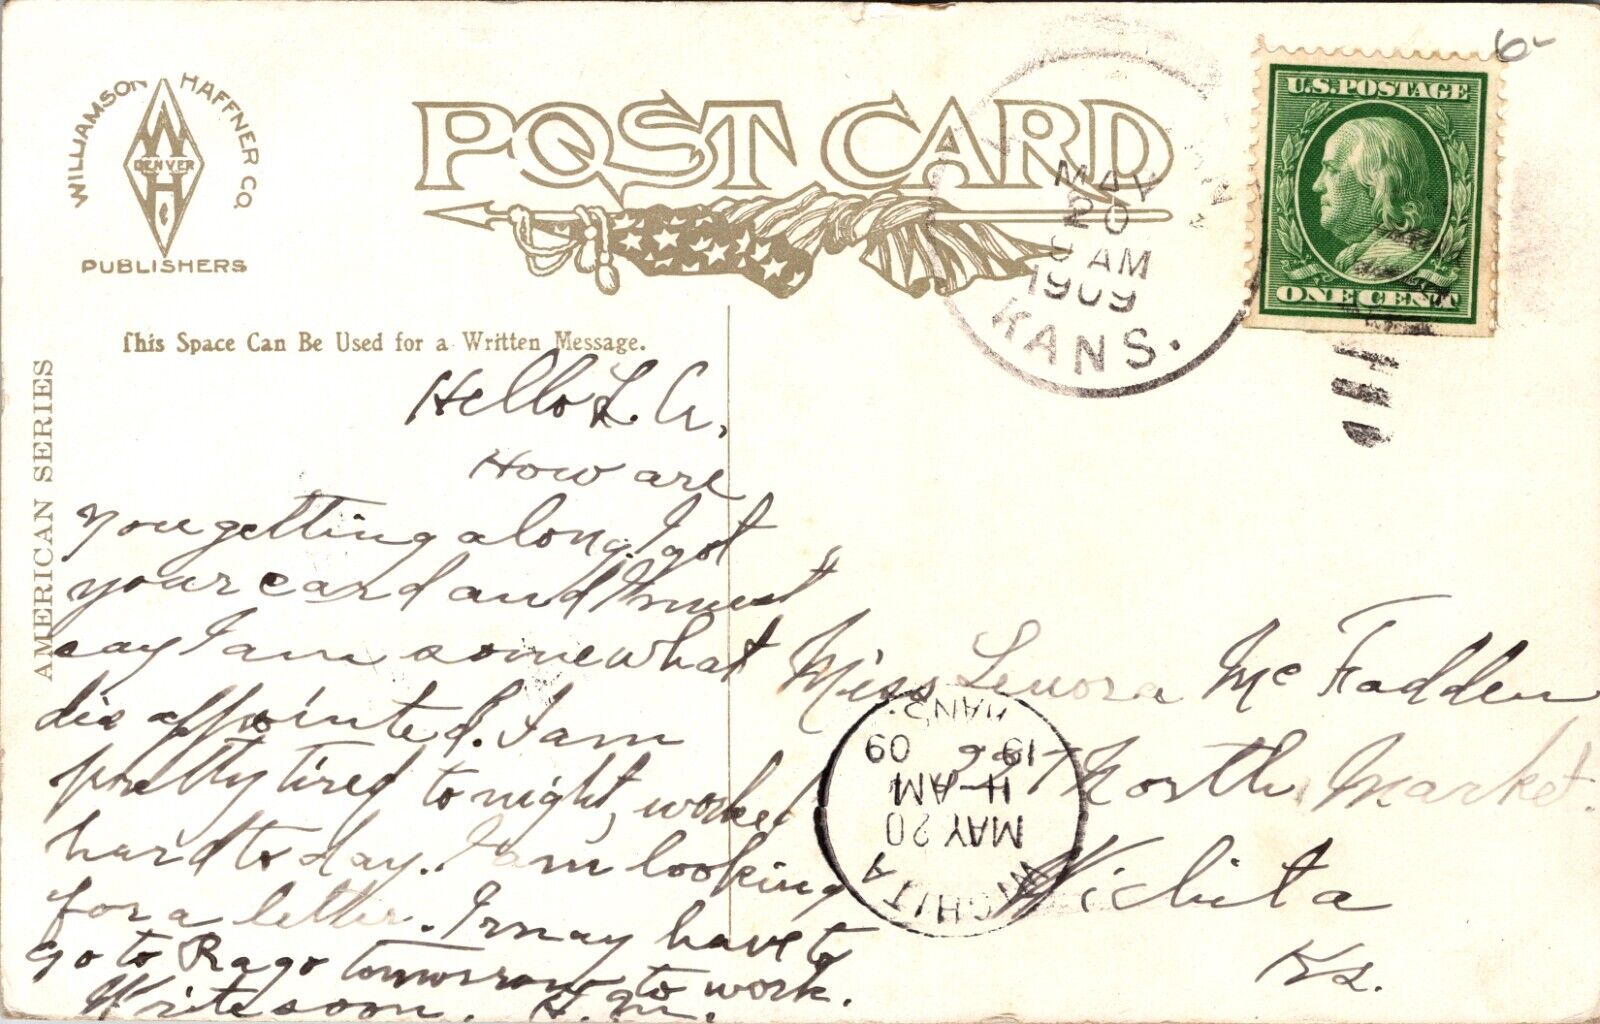 WILLIAMSON HAFFNER CO.
W
DENVER
H
&
PUBLISHERS
POST CARD
U.S. POSTAGE
ONE CENT
6
MAY
20
9 AM
1909
KANS.
This Space Can Be Used for a Written Message.
AMERICAN SERIES
Hello L. A.
How are
you getting along. I got
your card and I must
say I am somewhat
dis appointed. I am
pretty tired to night, worked
hard to day. I am looking
for a letter. I may have to
go to Rago tomorrow to work.
Write soon. H. M.
Miss Lenora McFadden
North Market.
Wichita
Ks.
WICHITA
MAY 20
11-AM
19 09
KANS.